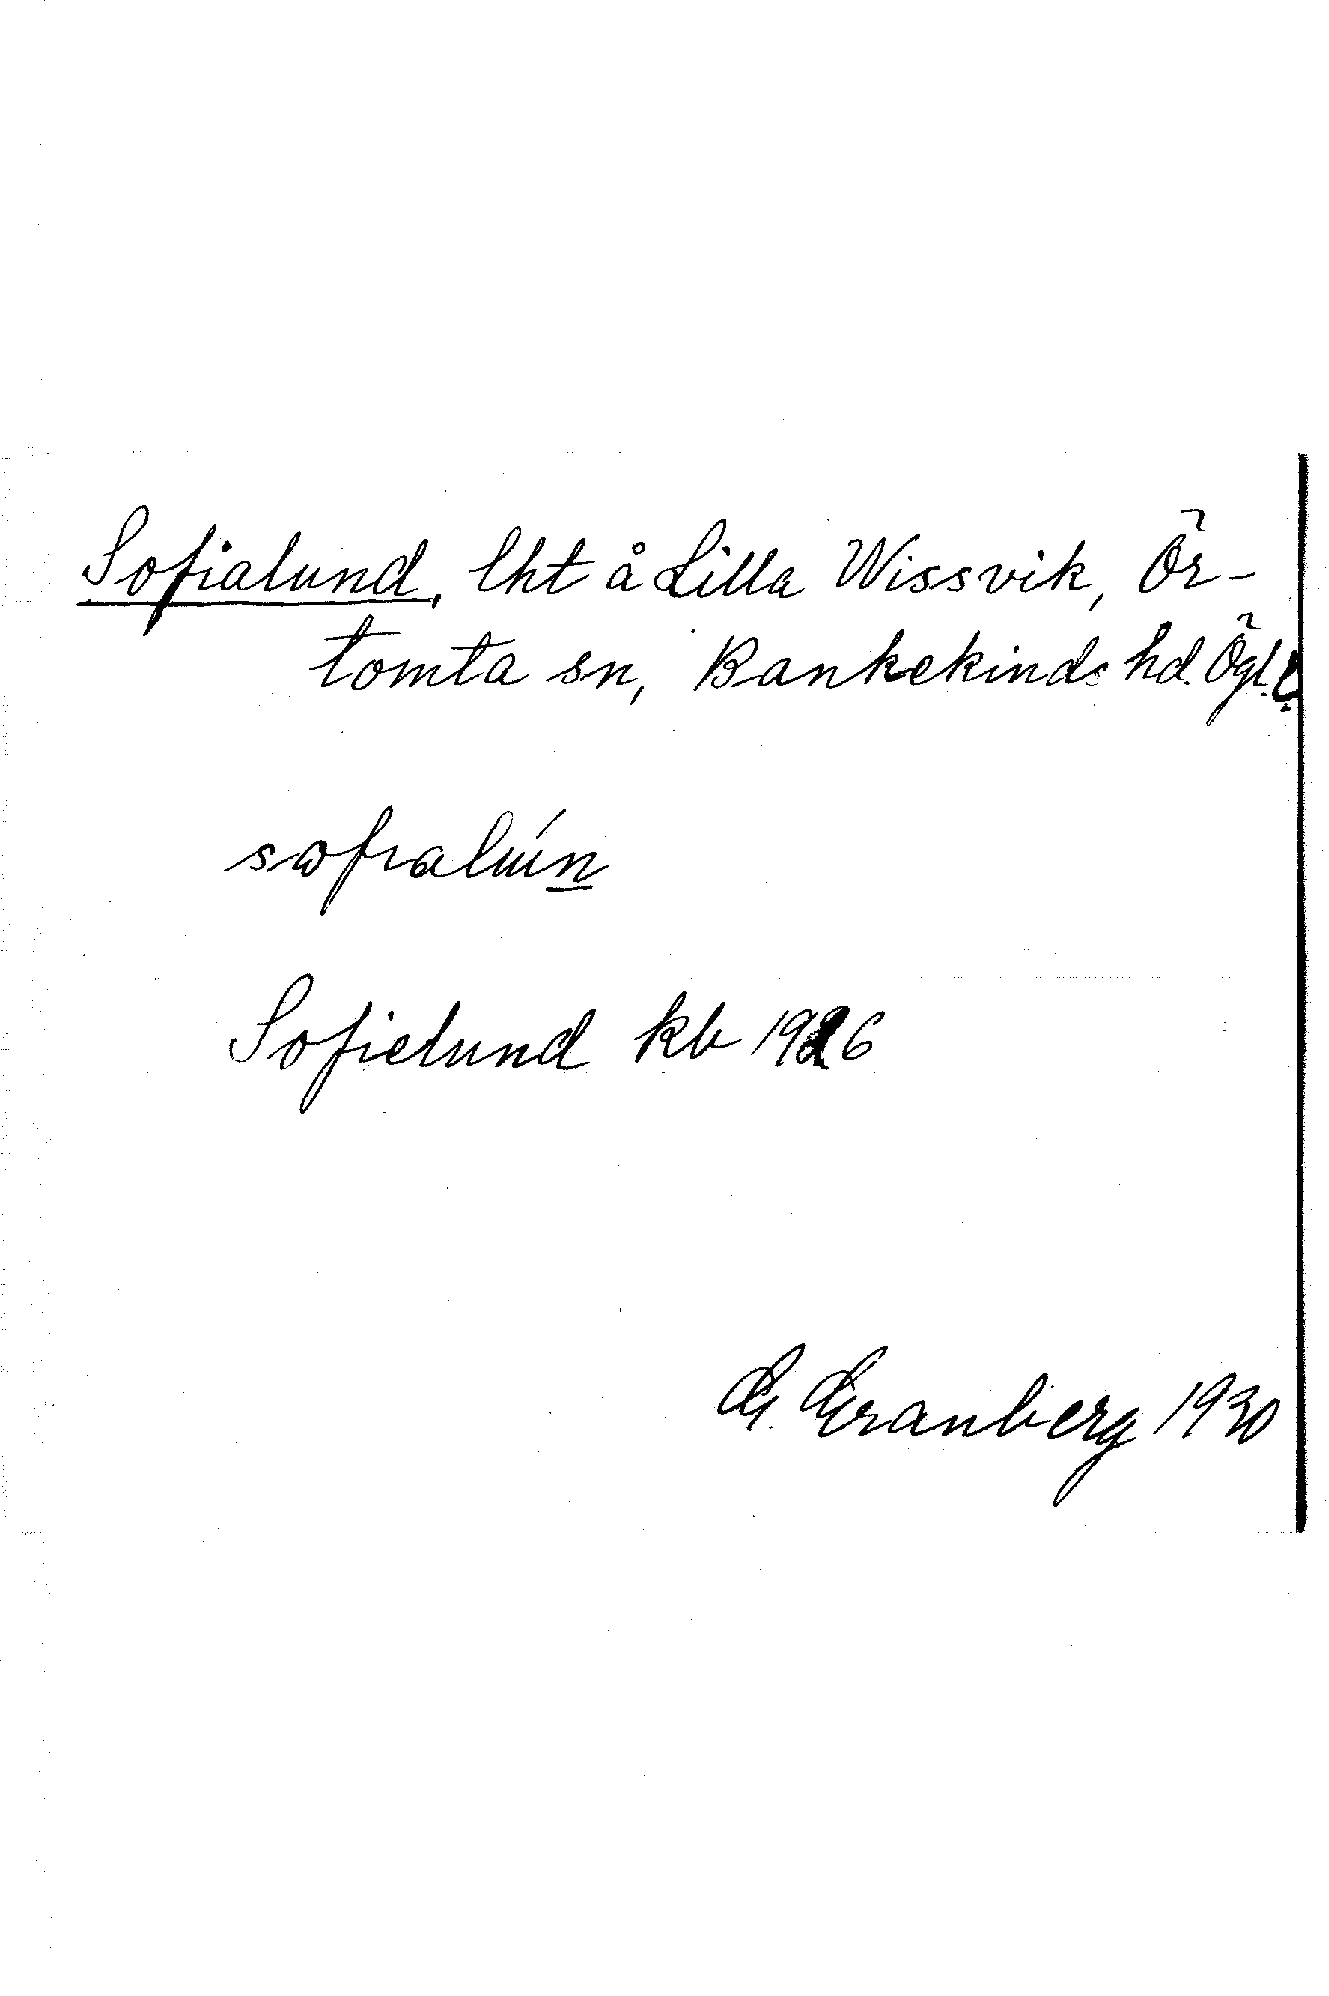 Sofialund, lht å Lilla Wissvik, Ör-
tomta sn, Bankekinds hd. Ögl.
Sofielund kb 1926
G. Granberg 1930